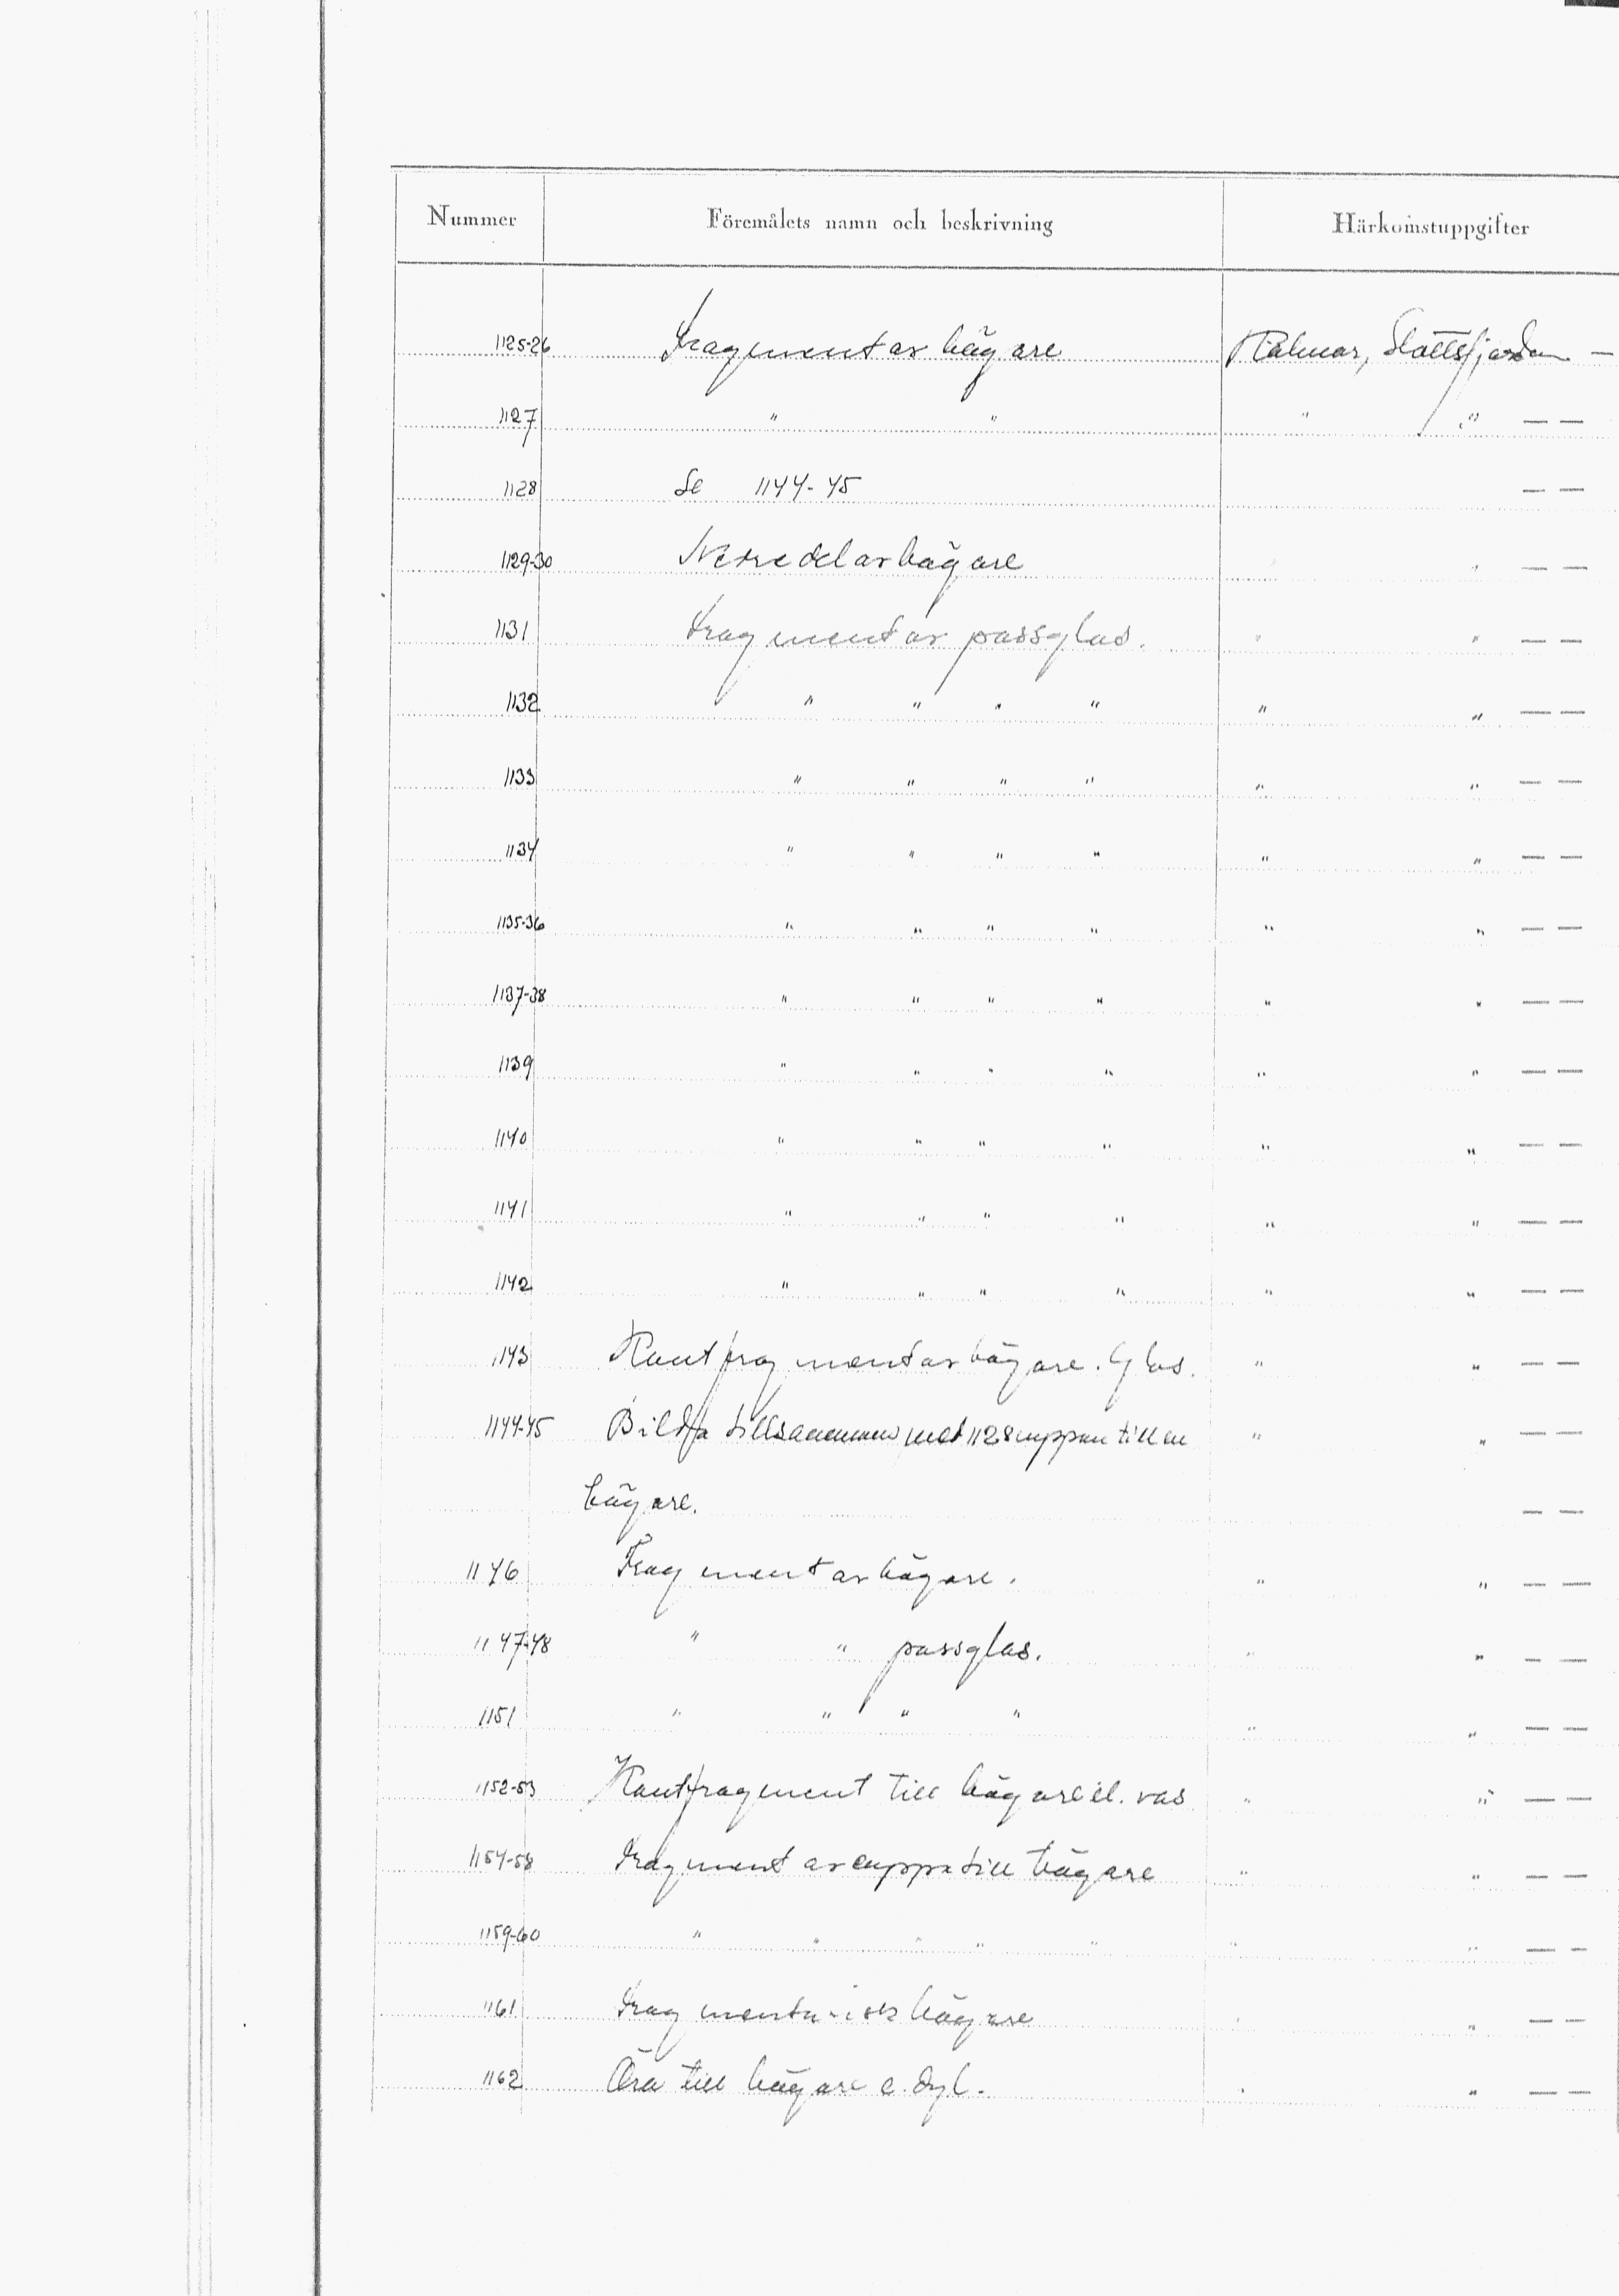 Nummer Föremålets namn och beskrivning Härkomstuppgifter
1125-26 Fragment av bägare Kalmar, Slottsfjärden —
1127 " " " " — —
1128 Se 1144-45 — —
1129-30 Nedre del av bägare " — —
1131 Fragment av passglas. " " — —
1132 " " " " " " — —
1133 " " " " " " — —
1134 " " " " " " — —
1135-36 " " " " " " — —
1137-38 " " " " " " — —
1139 " " " " " " — —
1140 " " " " " " — —
1141 " " " " " " — —
1142 " " " " " " — —
1143 Kantfragment av bägare. Glas. " " — —
1144-45 Bilda tillsammans med 1128 cuppan till en " " — —
bägare. — —
1146 Fragment av bägare. " " — —
1147-48 " " passglas. " " — —
1151 " " " " " " — —
1152-53 Kantfragment till bägare el. vas " " — —
1154-58 Fragment av cuppa till bägare " " — —
1159-60 " " " " " " " — —
1161 Fragmentarisk bägare " " — —
1162 Öra till bägare e. dyl. " " — —